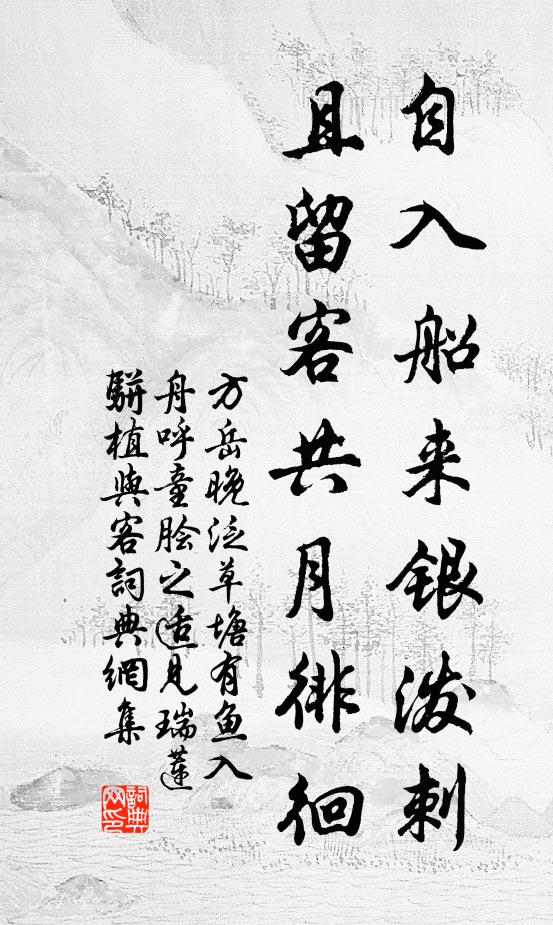 自入船来银泼刺
且留客共月徘徊
方岳晚泛草塘有鱼入
舟呼童脍之适见瑞莲
骈植与客詞典網集
詞典网印